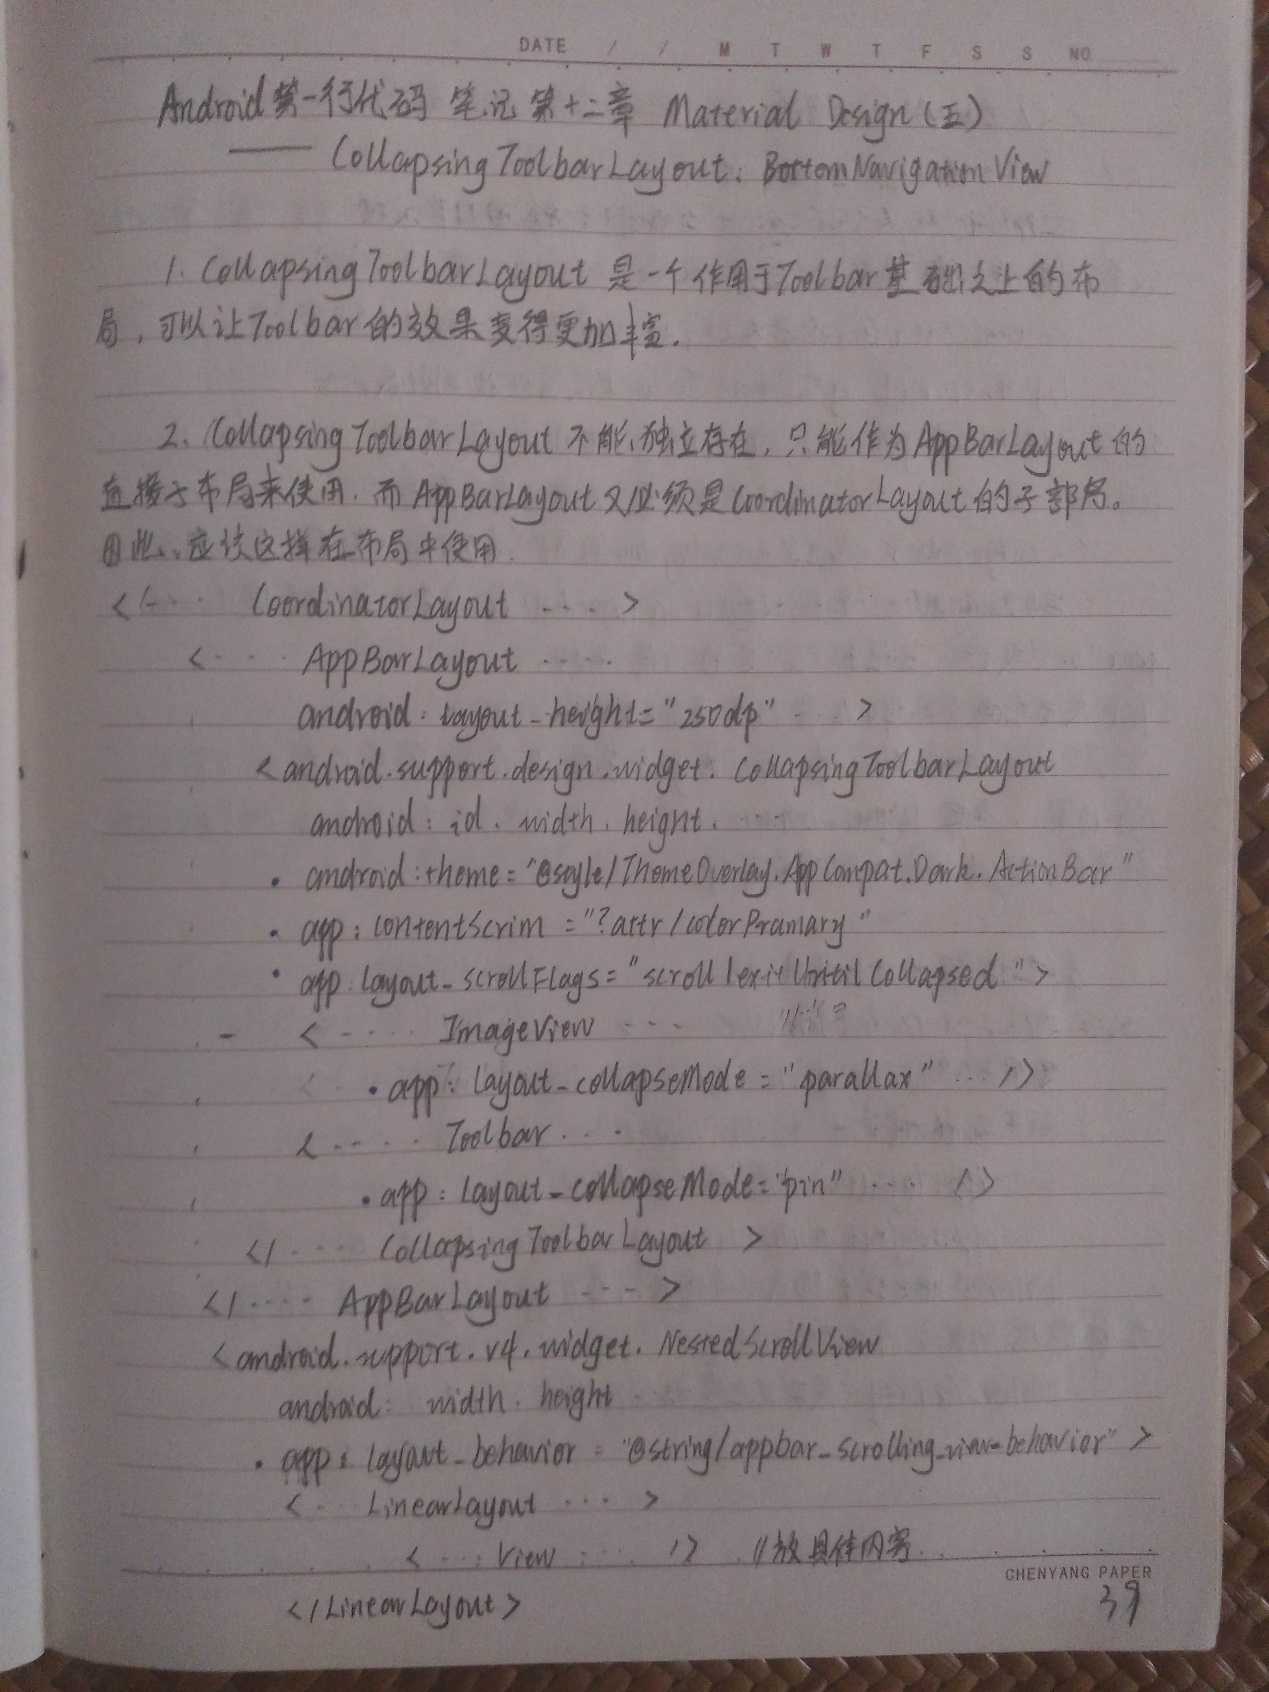 DATE / / M T W T F S S NO
Android 第一行代码 笔记 第十二章 Material Design (五)
—— CollapsingToolbarLayout、BottomNavigationView
1. CollapsingToolbarLayout 是一个作用于Toolbar基础之上的布
局,可以让Toolbar的效果变得更加丰富.
2、CollapsingToolbarLayout 不能独立存在,只能作为AppBarLayout的
直接子布局来使用.而AppBarLayout又必须是CoordinatorLayout的子部局。
因此、应该这样在布局中使用.
< ···· CoordinatorLayout ···· >
< ···· AppBarLayout ·····
android:layout_height="250dp" ··· >
<android.support.design.widget.CollapsingToolbarLayout
android:id. width. height. ····
· android:theme="@style/ThemeOverlay.AppCompat.Dark.ActionBar"
· app:contentScrim="?attr/colorPramary"
· app:layout_scrollFlags="scroll|exitUntilCollapsed">
- < ····· ImageView ···
· app:layout_collapseMode="parallax" ··· />
< ····· Toolbar ···
· app:layout_collapseMode="pin" ···· />
</ ···· CollapsingToolbarLayout >
</ ···· AppBarLayout ···· >
<android.support.v4.widget.NestedScrollView
android: width. height
· app:layout_behavior="@string/appbar_scrolling_view_behavior">
< ·· LinearLayout ··· >
< ··· View ···· /> //放具体内容.
CHENYANG PAPER
</LinearLayout>
39